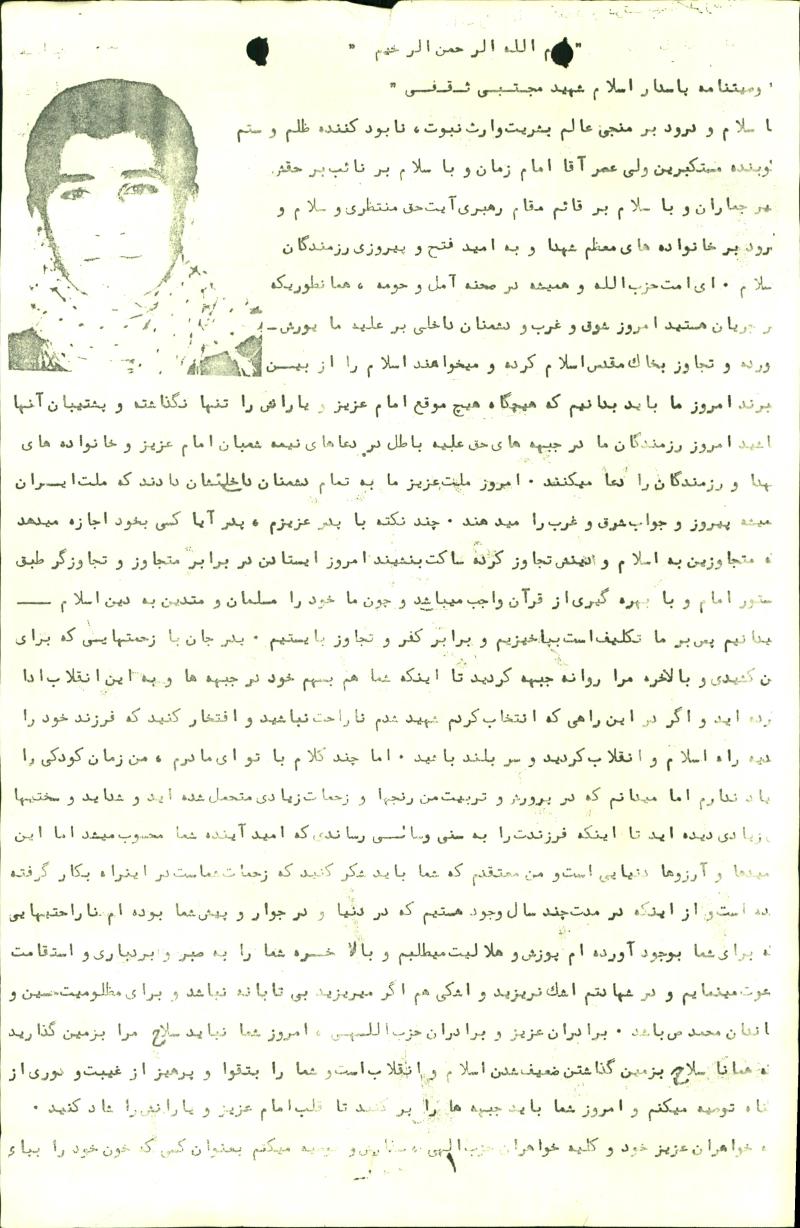 " الله الرحمن الرحیم "
وصیتنامه پاسدار اسلام شهید مجتبی ثقفی "
سلام و درود بر منجی عالم بشریت وارث نبوت، نابود کننده ظلم و ستم
کوبنده مستکبرین ولی عصر آقا امام زمان و با سلام بر نائب بر حقش
جماران و با سلام بر قائم مقام رهبری آیت حق منتظری و سلام و
درود بر خانواده های معظم شهدا و به امید فتح و پیروزی رزمندگان
اسلام . ای امت حزب الله و همیشه در صحنه آمل و حومه ، همانطوریکه
در جریان هستید امروز شرق و غرب و دشمنان داخلی بر علیه ما یورش
آورده و تجاوز بخاک مقدس اسلام کرده و میخواهند اسلام را از بیــن
ببرند امروز ما باید بدانیم که هیچگاه هیچ موقع امام عزیز و یارانش را تنها نگذاشته و پشتیبان آنها
باشید امروز رزمندگان ما در جبهه های حق علیه باطل در دعاهای نیمه شبان امام عزیز و خانواده های
شهدا و رزمندگان را دعا میکنند . امروز ملت عزیز ما به تمام دشمنان داخلیشان دادند که ملت ایــران
همیشه پیروز و جواب شرق و غرب را میدهند . چند نکته با پدر عزیزم ، پدر آیا کسی بخود اجازه میدهد
که متجاوزین به اسلام و دینش تجاوز کرده ساکت بنشیند امروز ایستادن در برابر متجاوز و تجاوزگر طبق
دستور امام و با بهره گیری از قرآن واجب میباشد و چون ما خود را مسلمان و متدین به دین اسلام ــ
میدانیم پس بر ما تکلیف است بپاخیزیم و برابر کفر و تجاوز بایستیم . پدر جان با زحمتهایی که برای
من کشیدی و بالاخره مرا روانه جبهه کردید تا اینکه شما هم بسهم خود در جبهه ها و به این انقلاب ادا
کرده اید و اگر در این راهی که انتخاب کردم شهید شدم ناراحت نباشید و افتخار کنید که فرزند خود را
هدیه راه اسلام و انقلاب کردید و سر بلند باشید . اما چند کلام با تو ای مادرم ، من زمان کودکی را
یاد ندارم اما میدانم که در پرورش و تربیت من رنجها و زحمات زیادی متحمل شده اید و شداید و سختیها
زیادی دیده اید تا اینکه فرزندت را به سنی وسائـی رساندی که امید آینده شما محسوب میشد اما این
امیدها و آرزوها دنیایی است و من معتقدم که شما باید شکر کنید که زحمات شماست در اینراه بکار گرفته
شده است و از اینکه در مدت چند سال وجود هستیم که در دنیا و در جوار و پیش شما بوده ام ناراحتیهایی
که برای شما بوجود آورده ام پوزش و هلالیت میطلبم و بالا خــره شما را به صبر و بردباری و استقامت
دعوت مینمایم و در شهادتم اشک نریزید و اشکی هم اگر میریزید بی تابانه نباشد و برای مظلومیت حسین و
خاندان محمد ص باشد . برادران عزیز و برادران حزب اللــهی ، امروز شما نباید سلاح مرا بزمین گذارید
که همانا سلاح بزمین گذاشتن ضعیف شدن اسلام و انقلاب است و شما را بتقوا و پرهیز از غیبت و دوری از
گناه توصیه میکنم و امروز شما باید جبهه ها را پر کنید تا قلب امام عزیز و یارانش را شاد کنید .
خواهران عزیز خود و کلیه خواهران حزب الهی سفارش و توصیه میکنم بعنوان کسی که خون خود را بپای
۱